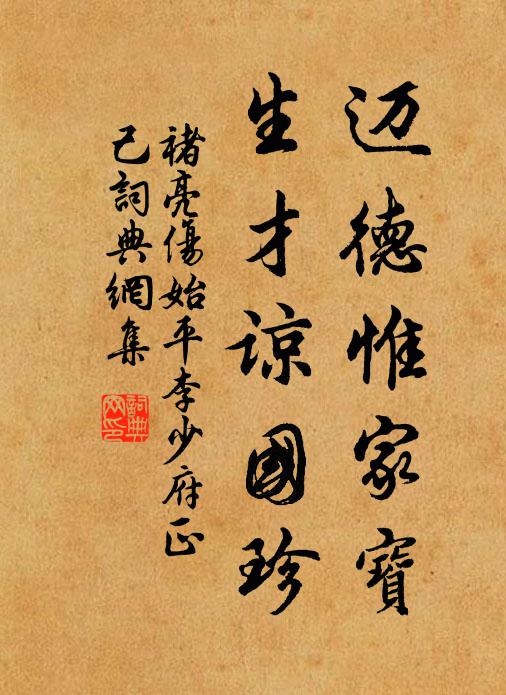 迈德惟家寶
生才谅國珍
褚亮傷始平李少府正
己詞典網集
詞典
网印